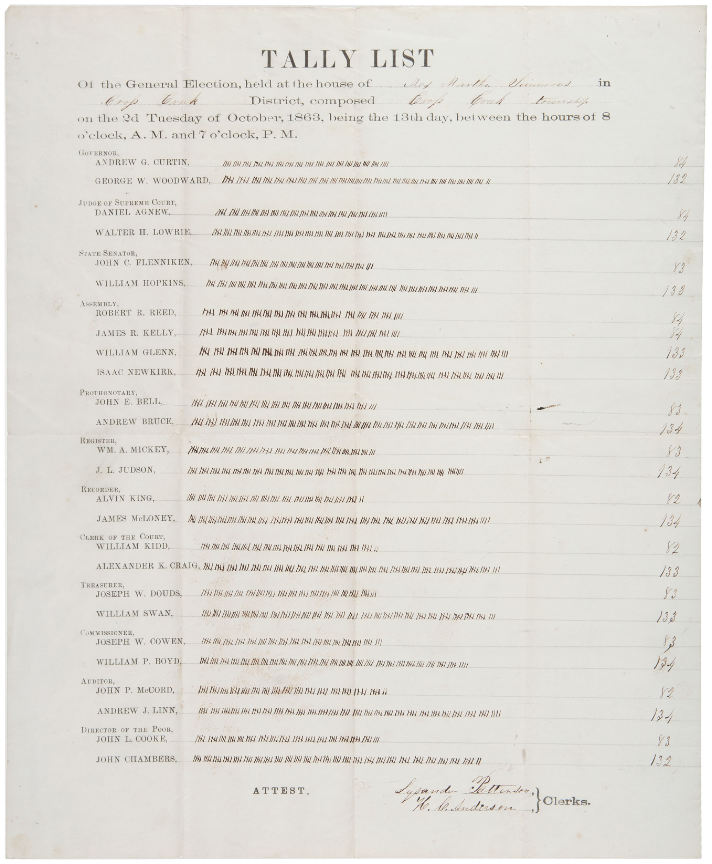 TALLY LIST
Of the General Election, held at the house of Martha in
Cross Creek District, composed Cross Creek township
on the 2d Tuesday of October, 1863, being the 13th day, between the hours of 8
o'clock, A. M. and 7 o'clock, P. M.
GOVERNOR,
ANDREW G. CURTIN, 84
GEORGE W. WOODWARD, 132
JUDGE OF SUPREME COURT,
DANIEL AGNEW, 84
WALTER H. LOWRIE, 132
STATE SENATOR,
JOHN C. FLENNIKEN, 83
WILLIAM HOPKINS, 132
ASSEMBLY,
ROBERT R. REED, 84
JAMES R. KELLY, 84
WILLIAM GLENN, 133
ISAAC NEWKIRK, 133
PROTHONOTARY,
JOHN E. BELL, 83
ANDREW BRUCE, 134
REGISTER,
WM. A. MICKEY, 83
J. L. JUDSON, 134
RECORDER,
ALVIN KING, 82
JAMES McLONEY, 134
CLERK OF THE COURT,
WILLIAM KIDD, 82
ALEXANDER K. CRAIG, 133
TREASURER,
JOSEPH W. DOUDS, 83
WILLIAM SWAN, 133
COMMISSIONER,
JOSEPH W. COWEN, 83
WILLIAM P. BOYD, 134
AUDITOR,
JOHN P. McCORD, 82
ANDREW J. LINN, 134
DIRECTOR OF THE POOR,
JOHN L. COOKE, 83
JOHN CHAMBERS, 132
ATTEST. Lysander Patterson,
H. C. Anderson } Clerks.